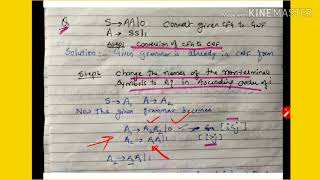 Q. S→AA|0 Convert given CFG to GNF
A→SS|1
Step1 Conversion of CFG to CNF
Solution:- Given grammar is already in CNF form
Step2 Change the names of the non-terminals
Symbols to Ai in Ascending order of i
S→A1 A→A2
Now the given grammar becomes
A1→A2A2|0
A2→A1A1|1
A2→A1A1|1
KINEMASTER